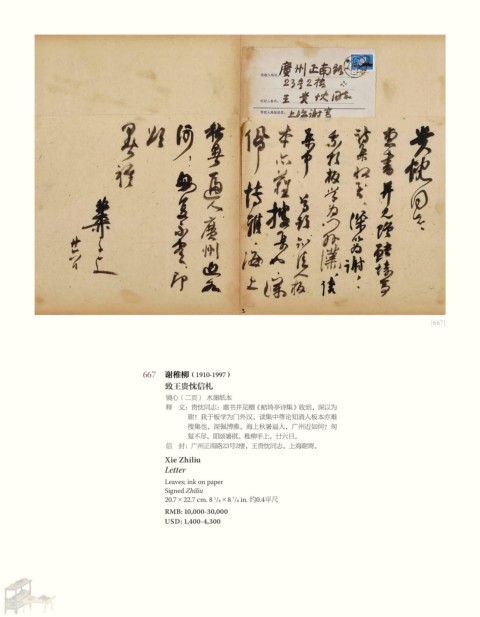 廣州正南路
23号2楼
王贵忱同志
上海謝寄
贵忱同志：
惠書并見贈鮚埼亭
詩集收到，深以为謝！
我于板学为门外漢，读
集中 尊论知清人板
本亦難搜集也，深
佩博雅。海上
秋暑逼人，廣州近如
何？匆复不尽，即
颂
暑祺
稚柳手上
廿六日
3
[667]
667 謝稚柳（1910-1997）
致王贵忱信札
镜心（二页） 水墨纸本
释 文：贵忱同志：惠书并见赠《鲒埼亭诗集》收到，深以为
谢！我于板学为门外汉，读集中尊论知清人板本亦难
搜集也，深佩博雅。海上秋暑逼人，广州近如何？匆
复不尽，即颂暑祺。稚柳手上，廿六日。
信 封：广州正南路23号2楼、王贵忱同志。上海谢寄。
Xie Zhiliu
Letter
Leaves; ink on paper
Signed Zhiliu
20.7 × 22.7 cm. 8 1/8 × 8 7/8 in. 约0.4平尺
RMB: 10,000-30,000
USD: 1,400-4,300